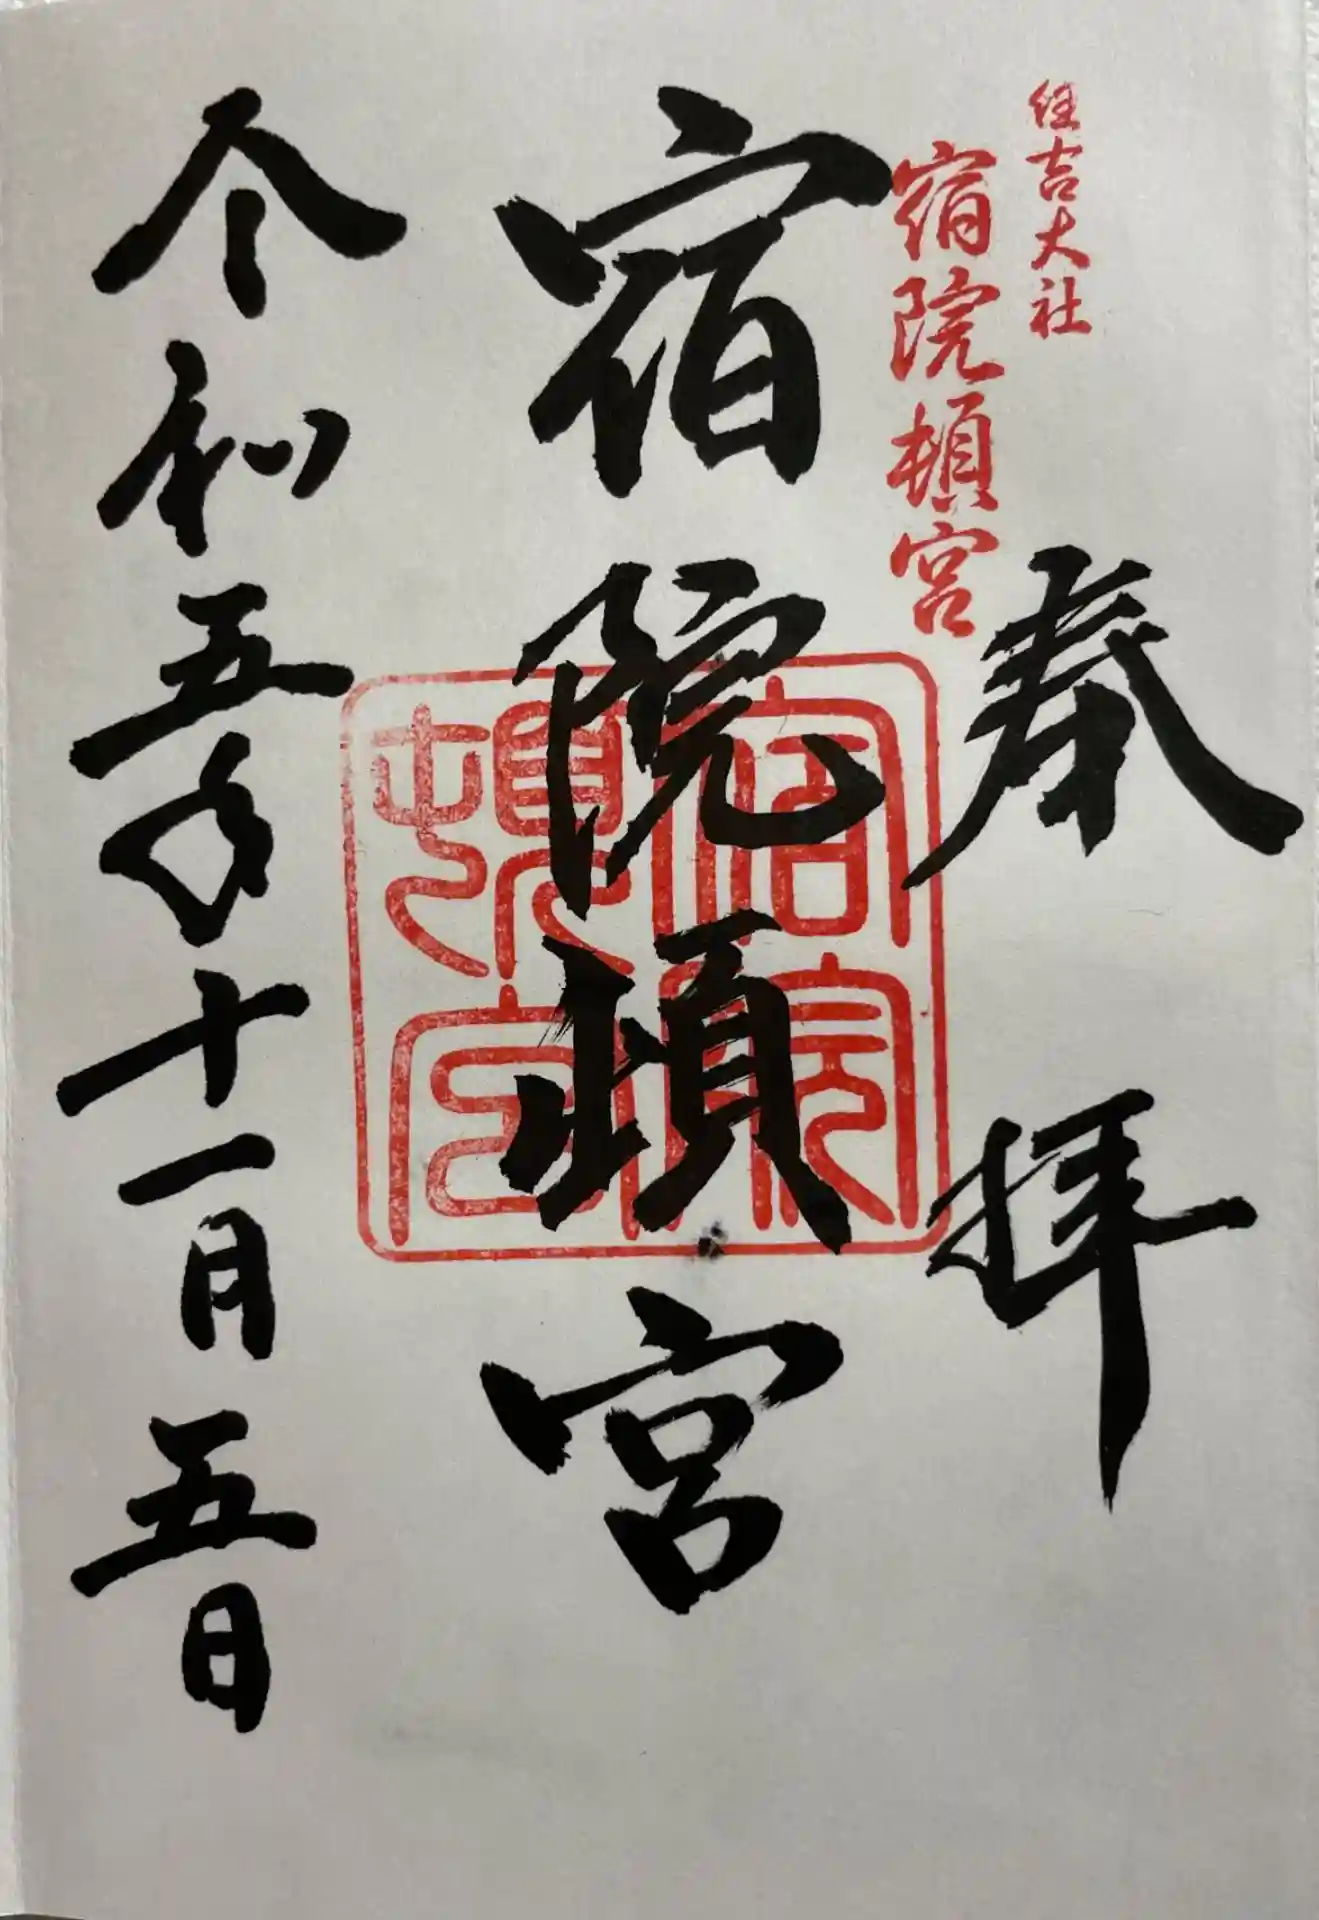 住吉大社
宿院頓宮
奉拝
宿院頓宮
宿院
頓宮
令和五年十一月五日